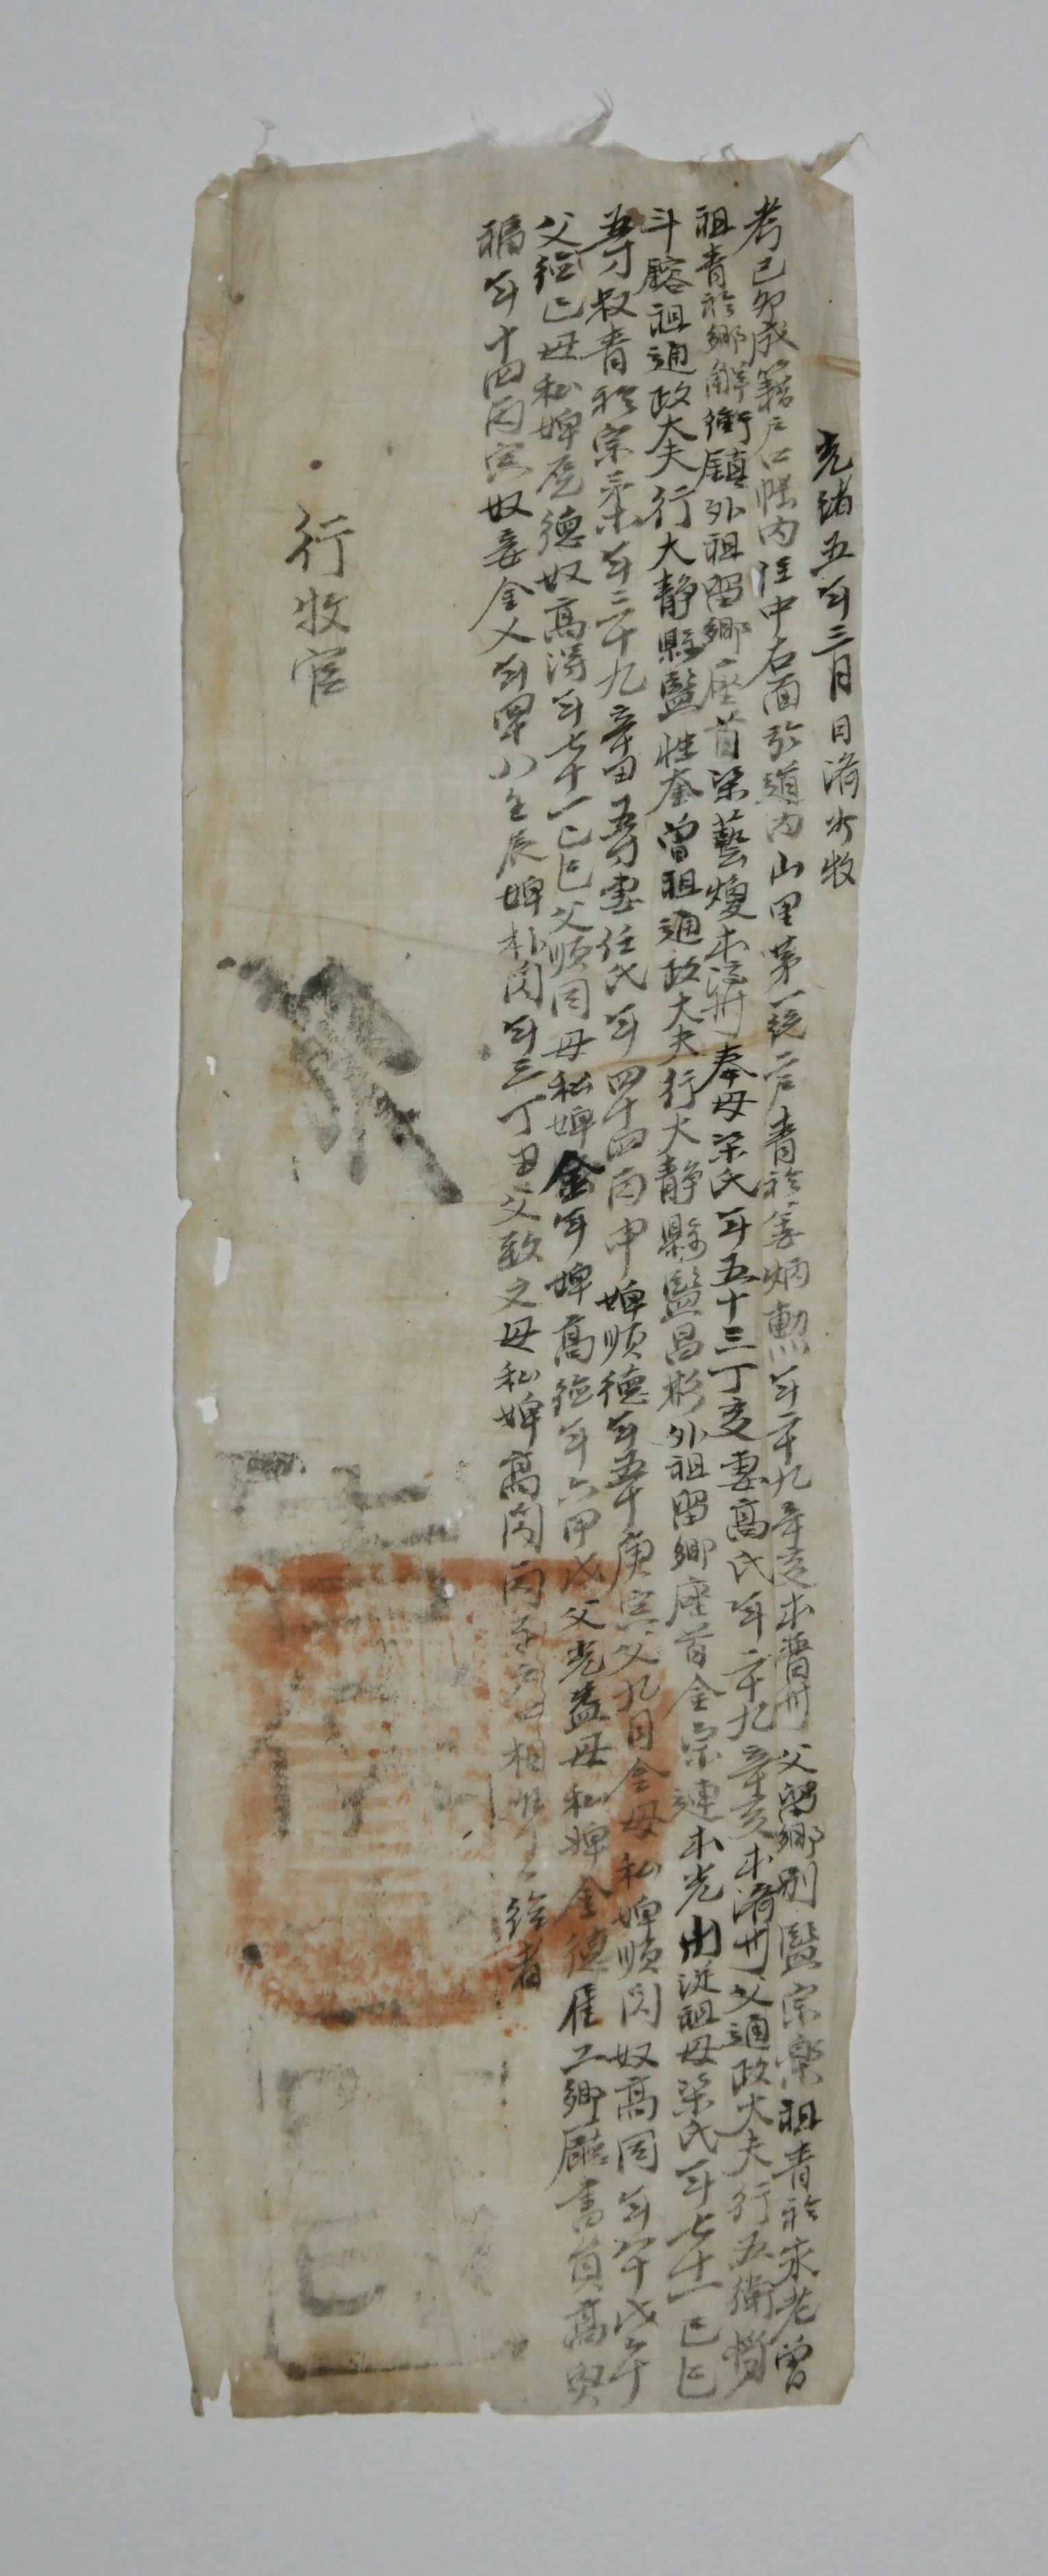 光緖五年三月 日濟州牧
考己卯成籍戶口帳內住中右面於道內山里第一統二戶靑衿姜炳勳年二十九辛亥本晋州父留鄕別監宗樂祖靑衿永老曾
祖靑衿鄕解衛鎭外祖留鄕座首梁藝燰本済州奉母梁氏年五十三丁亥妻高氏年二十九辛亥本濟州父通政大夫行五衛將
斗膺祖通政大夫行大靜縣監性奎曾祖通政大夫行大靜縣監昌彬外祖留鄕座首金宗連本光山從祖母梁氏年七十一己巳
寿叔靑衿宗 年三十九辛丑寿妻任氏年四十四丙申婢順德年五十庚寅父九月金母私婢順闪奴高同年六十戊午
父 已母私婢 德奴高 年七十一己巳父順同母私婢金年婢高 年六甲戌父光益母私婢金德雇工鄕廳書員高
年十四丙寅奴 金 年四十八壬辰婢朴闪年三丁丑父致文母私婢高闪丙子戶口相準 給者
行牧官